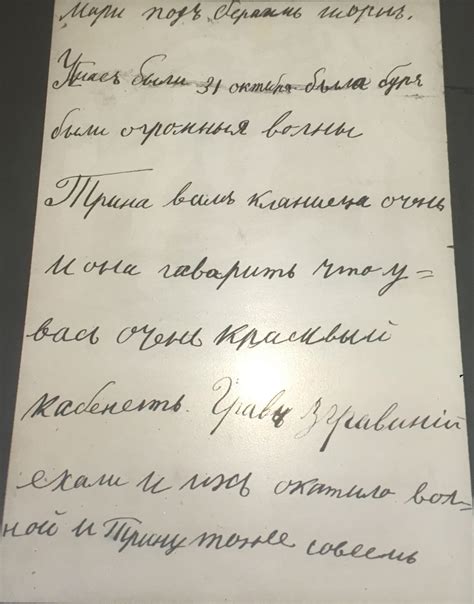 Мари подъ
Унасъ были 31 октября была буря
были огромныя волны
Трина вамъ кланиеца очень
и она гаварить что у=
васъ очень красивый
кабенетъ. Графъ з Графиній
ехали и ихъ окатило вол-
ной и Трину тоже совсемъ